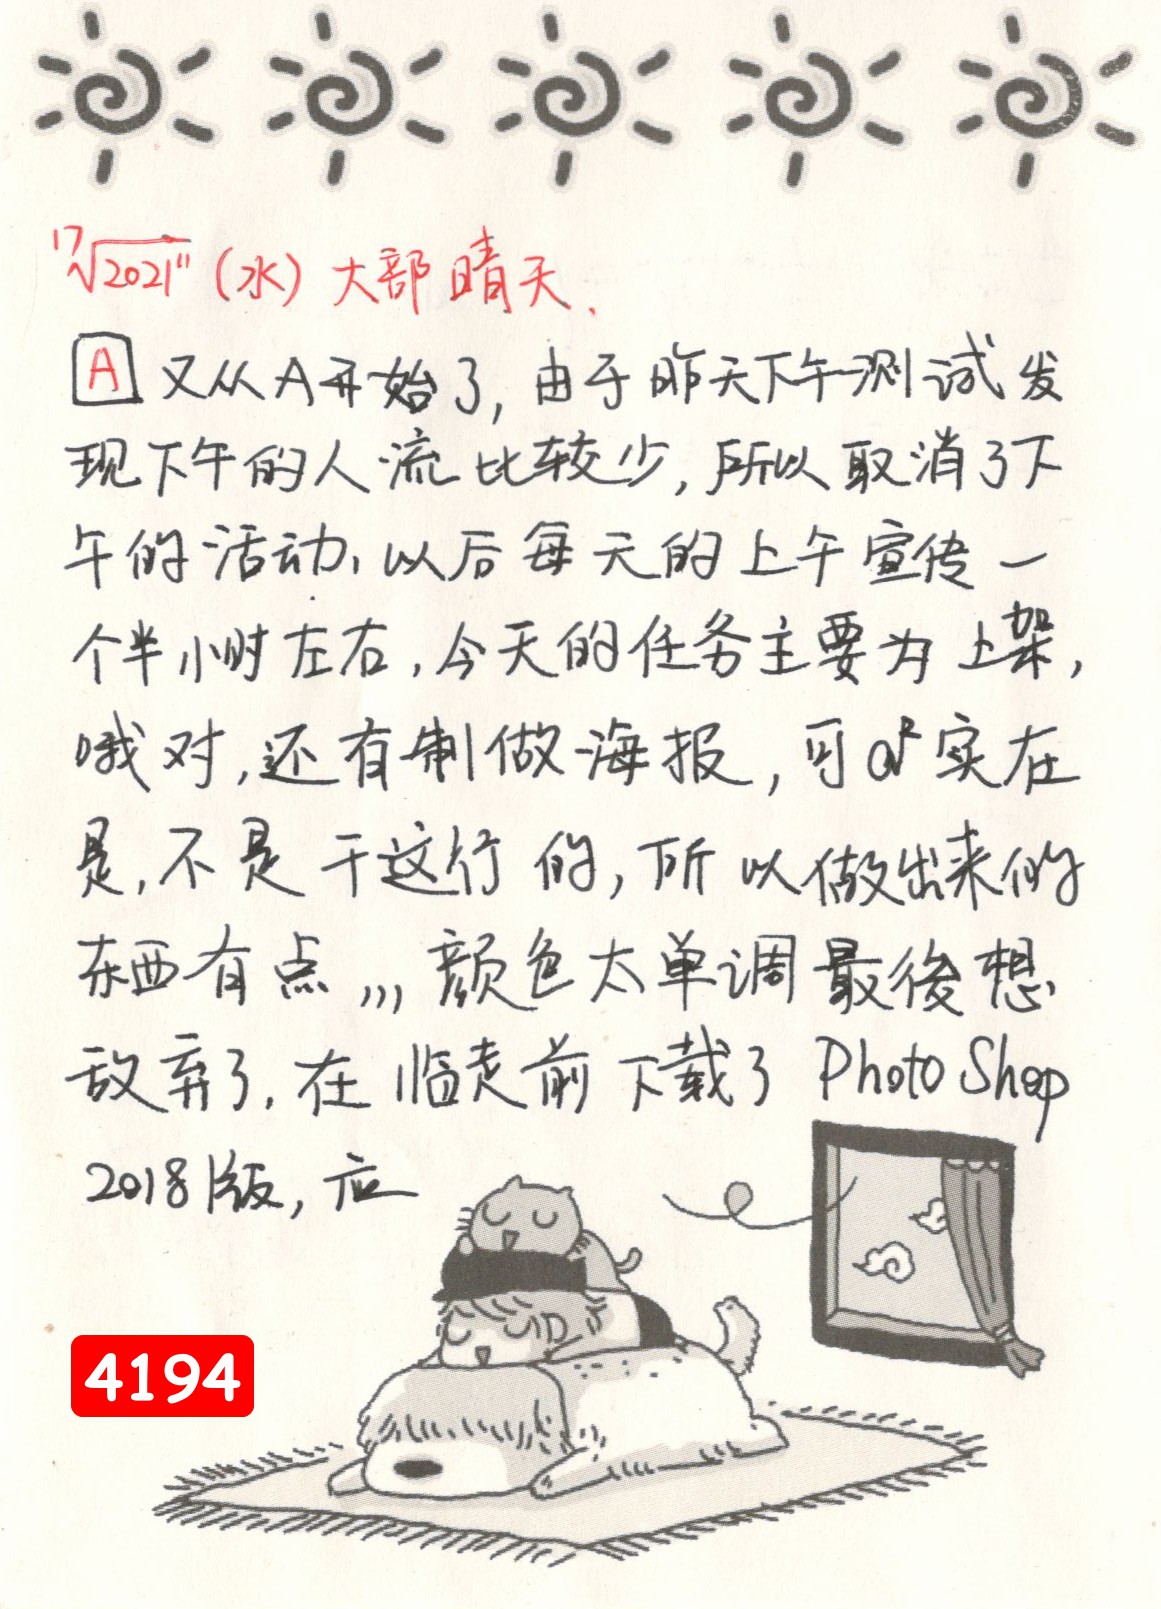 17√2021" (水) 大部晴天、
A 又从A开始了, 由于昨天下午测试发
现下午的人流比较少, 所以取消了下
午的活动, 以后每天的上午宣传一
个半小时左右, 今天的任务主要为上架,
哦对, 还有制做海报, 可 实在
是, 不是干这行的, 所以做出来的
东西有点,,, 颜色太单调最後想
放弃了. 在临走前下载了 PhotoShop
2018版, 应
4194